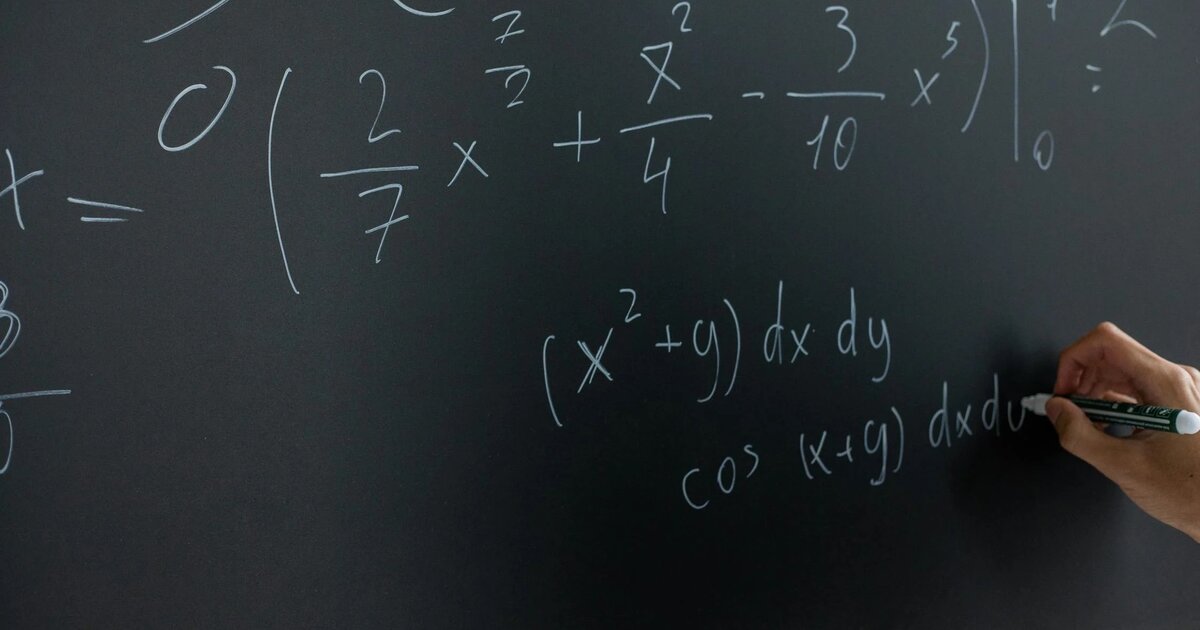 x = 0 ( 2/7 x^7/2 + x^2/4 - 3/10 x^5 ) |_0 =
(x^2 + y) dx dy
cos (x+y) dx dy